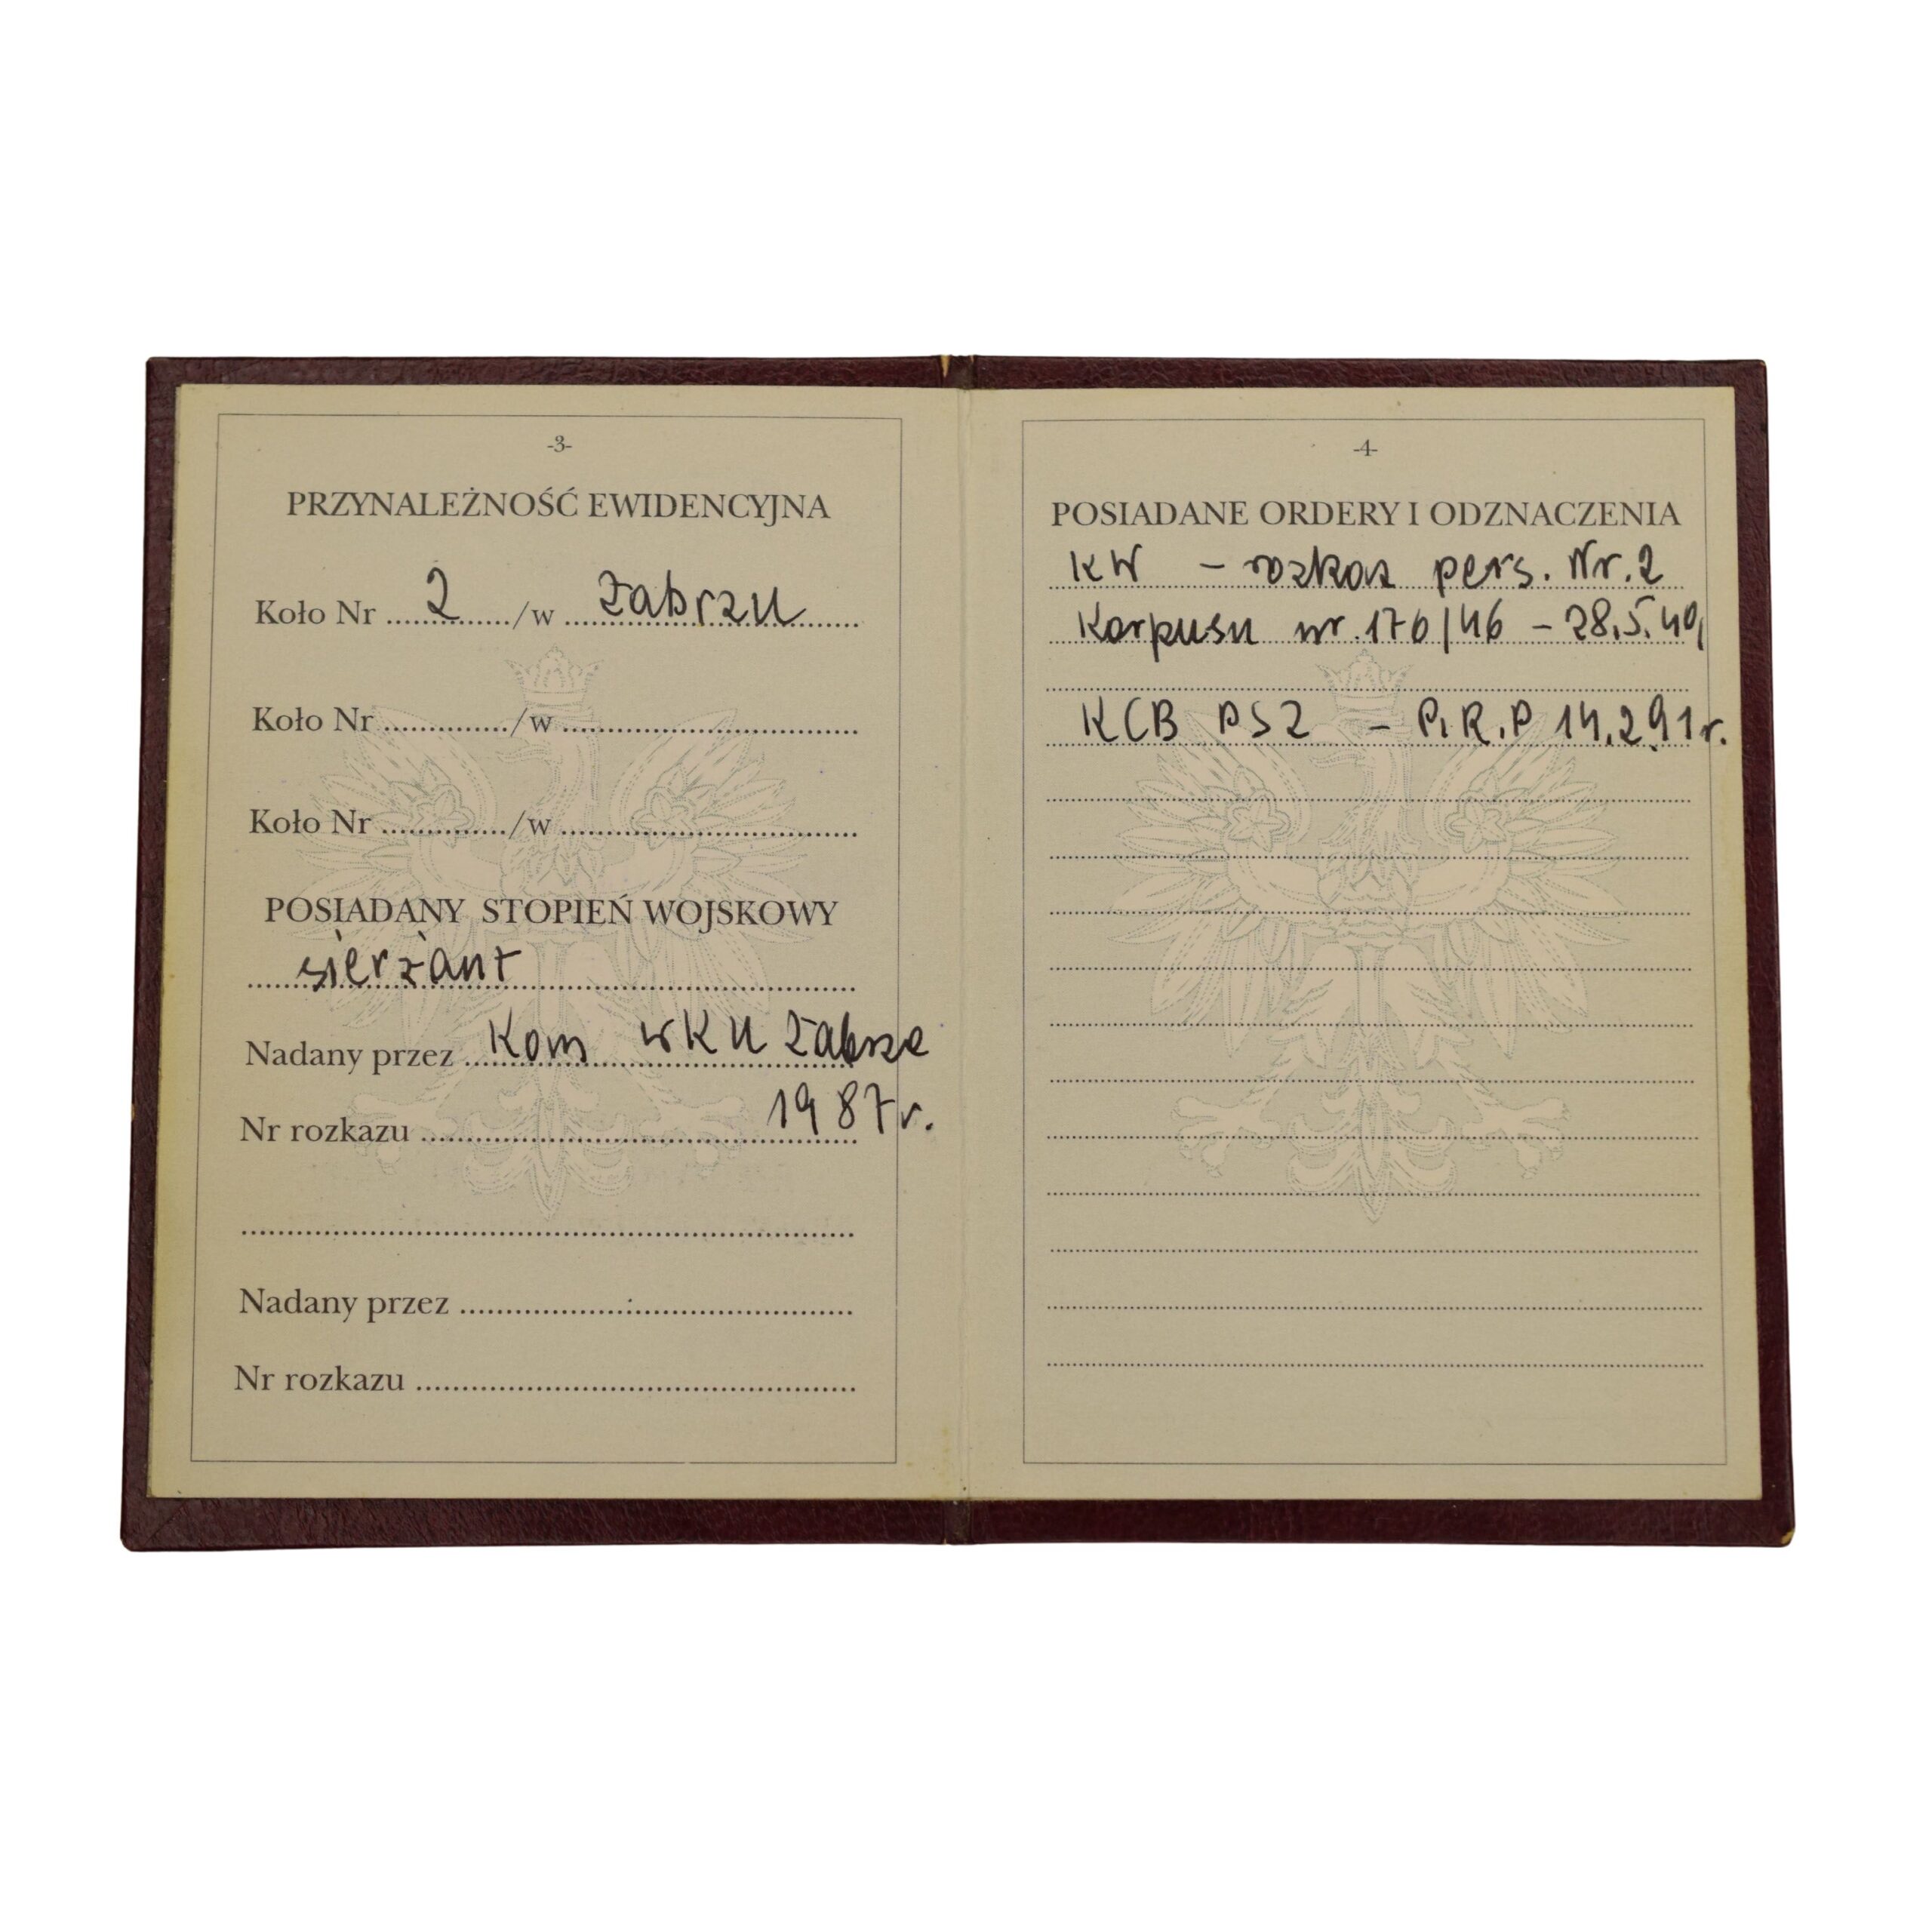 -3-
PRZYNALEŻNOŚĆ EWIDENCYJNA
Koło Nr 2 /w Zabrzu
Koło Nr ............../w ......................................
Koło Nr ............../w ......................................
POSIADANY STOPIEŃ WOJSKOWY
sierżant
Nadany przez Kom WKU Zabrze
Nr rozkazu 1987r.
Nadany przez ......................................
Nr rozkazu ......................................
-4-
POSIADANE ORDERY I ODZNACZENIA
KW - rozkaz pers. Nr. 2
Korpusu nr. 176/46 - 28.5.40,
KCB PSZ - P.R.P 14.2.91r.